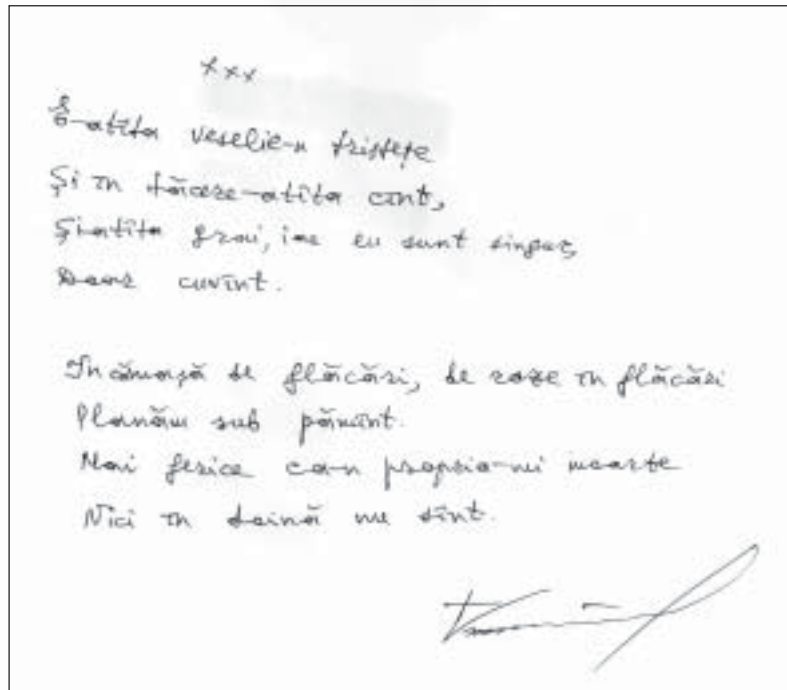 xxx
E-atîta veselie-n tristețe
Și în tăcere-atîta cînt,
Și-atîta grai, iar eu sunt singur,
Doar cuvînt.
În cămașă de flăcări, de roze în flăcări
Planăm sub pămînt.
Mai ferice ca-n propria-mi moarte
Nici în taină nu sînt.